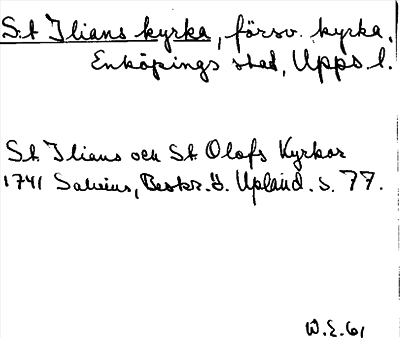 S:t Ilians kyrka, försv. kyrka,
Enköpings stad, Upps. l.
St. Ilians och St. Olofs Kyrkor
1741 Salvius, Beskr. ö. Upland. s. 77.
W.E. 61